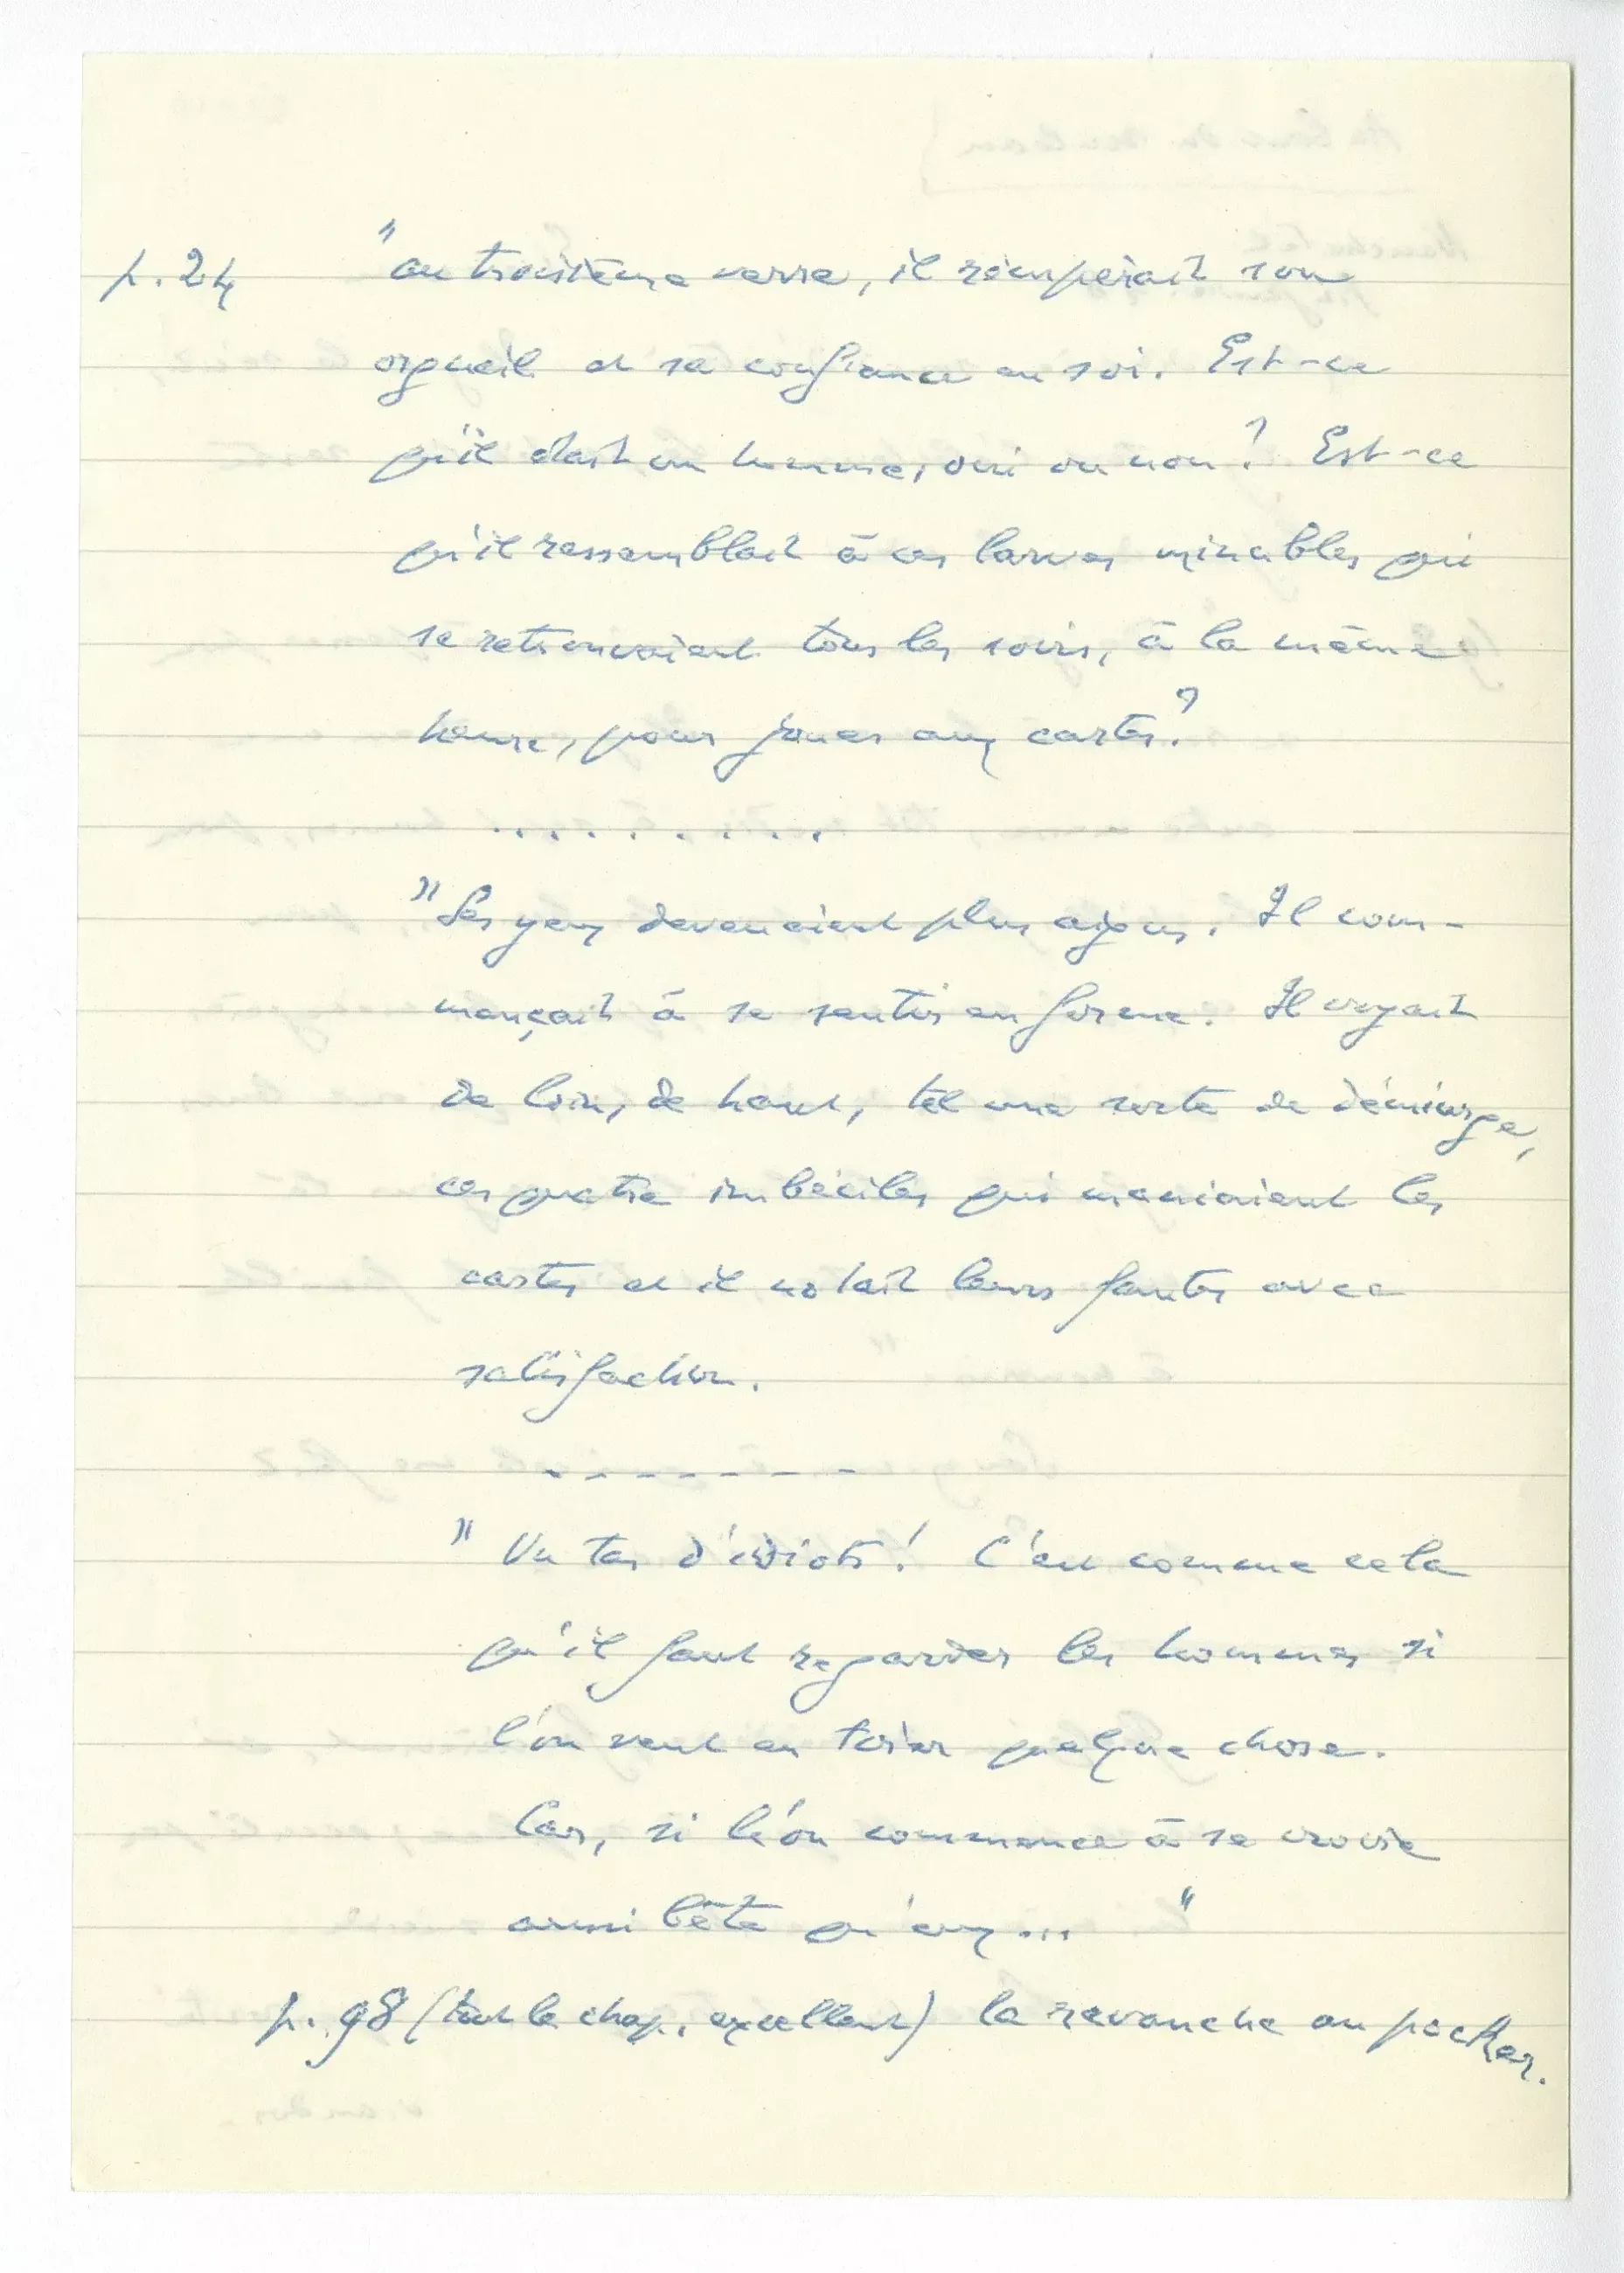 p. 24 "au troisième verre, il récupérait son
orgueil et sa confiance en soi. Est-ce
qu'il était un homme, oui ou non ? Est-ce
qu'il ressemblait à ces larves minables qui
se retrouvaient tous les soirs, à la même
heure, pour jouer aux cartes ?
. . . . . . . . .
"Ses yeux devenaient plus aigus. Il com-
mençait à se sentir en forme. Il voyait
de loin, de haut, tel une sorte de démiurge,
ces quatre imbéciles qui maniaient les
cartes et il notait leurs fautes avec
satisfaction.
- - - - - - - -
"Un tas d'idiots ! C'est comme cela
qu'il faut regarder les hommes si
l'on veut en tirer quelque chose.
Car, si l'on commence à se croire
aussi bête qu'eux..."
p. 98 (tout le chap. excellent) la revanche au pocker.